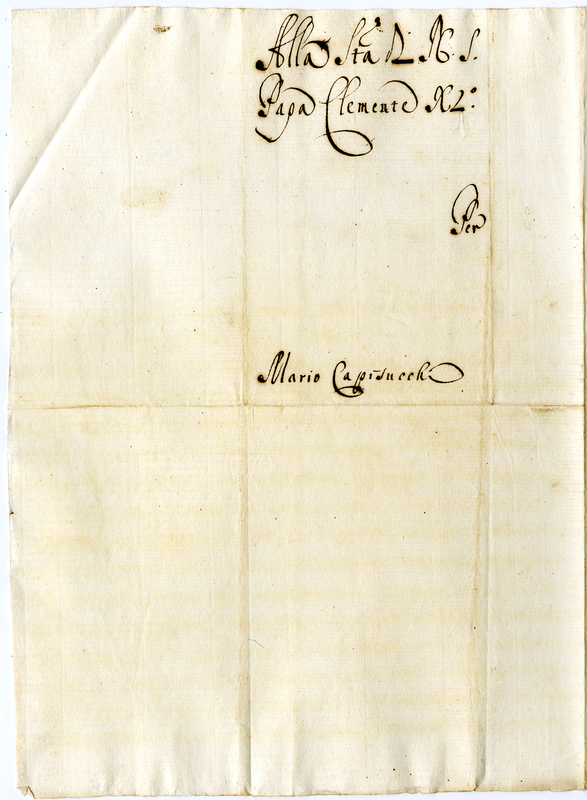 Alla Stà di N. S.
Papa Clemente XI.º
Per
Mario Capisucchi